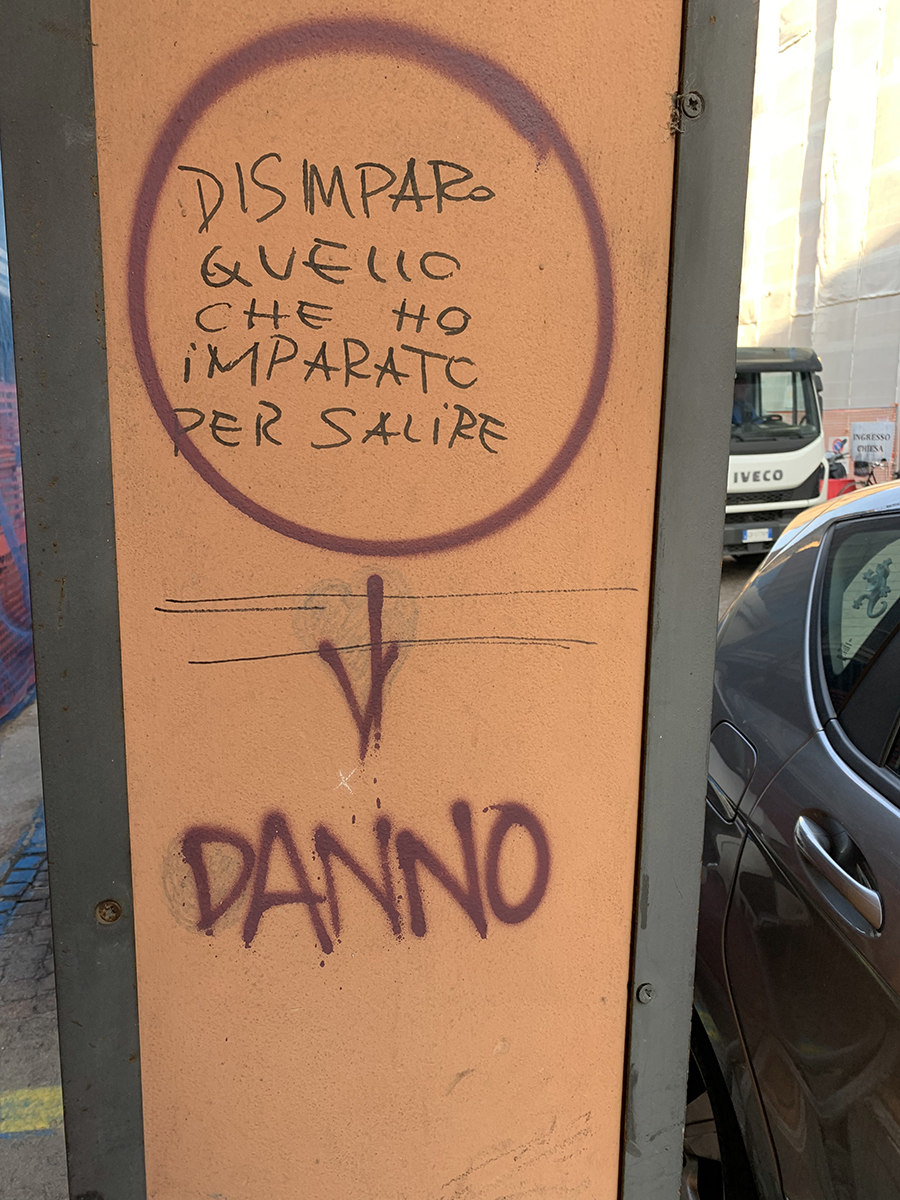 DISIMPARO
QUELLO
CHE HO
iMPARATO
PER SALiRE
DANNO
IVECO
INGRESSO
CHIESA